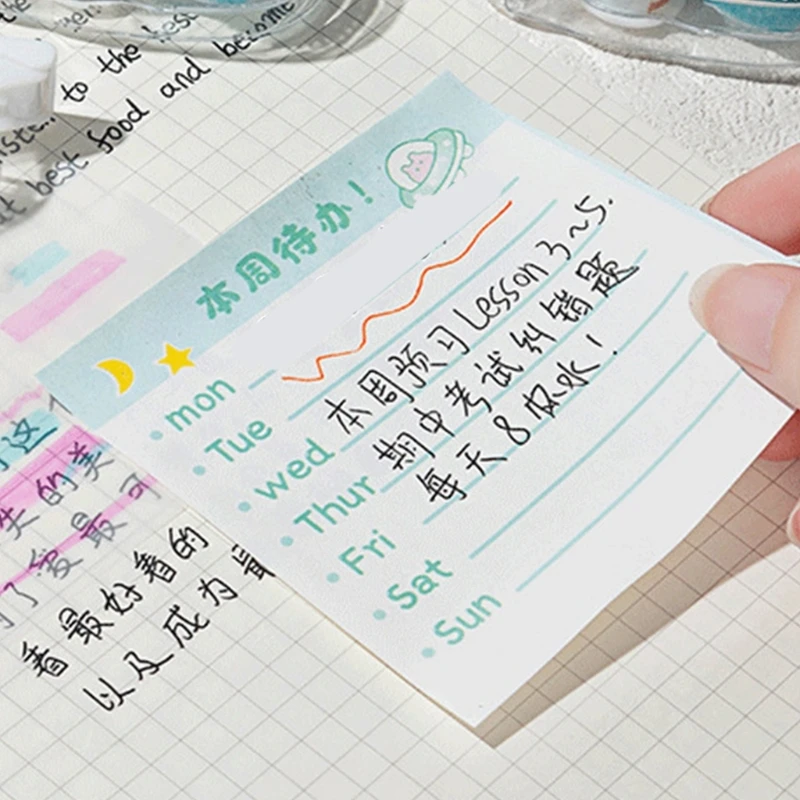 the best
to the best
best food and become
本周待办！
mon
Tue
wed 本周预习Lesson 3~5.
Thur 期中考试纠错题
Fri 每天8杯水！
Sat
Sun
这
的美
最可
看最好看的
以及成为最